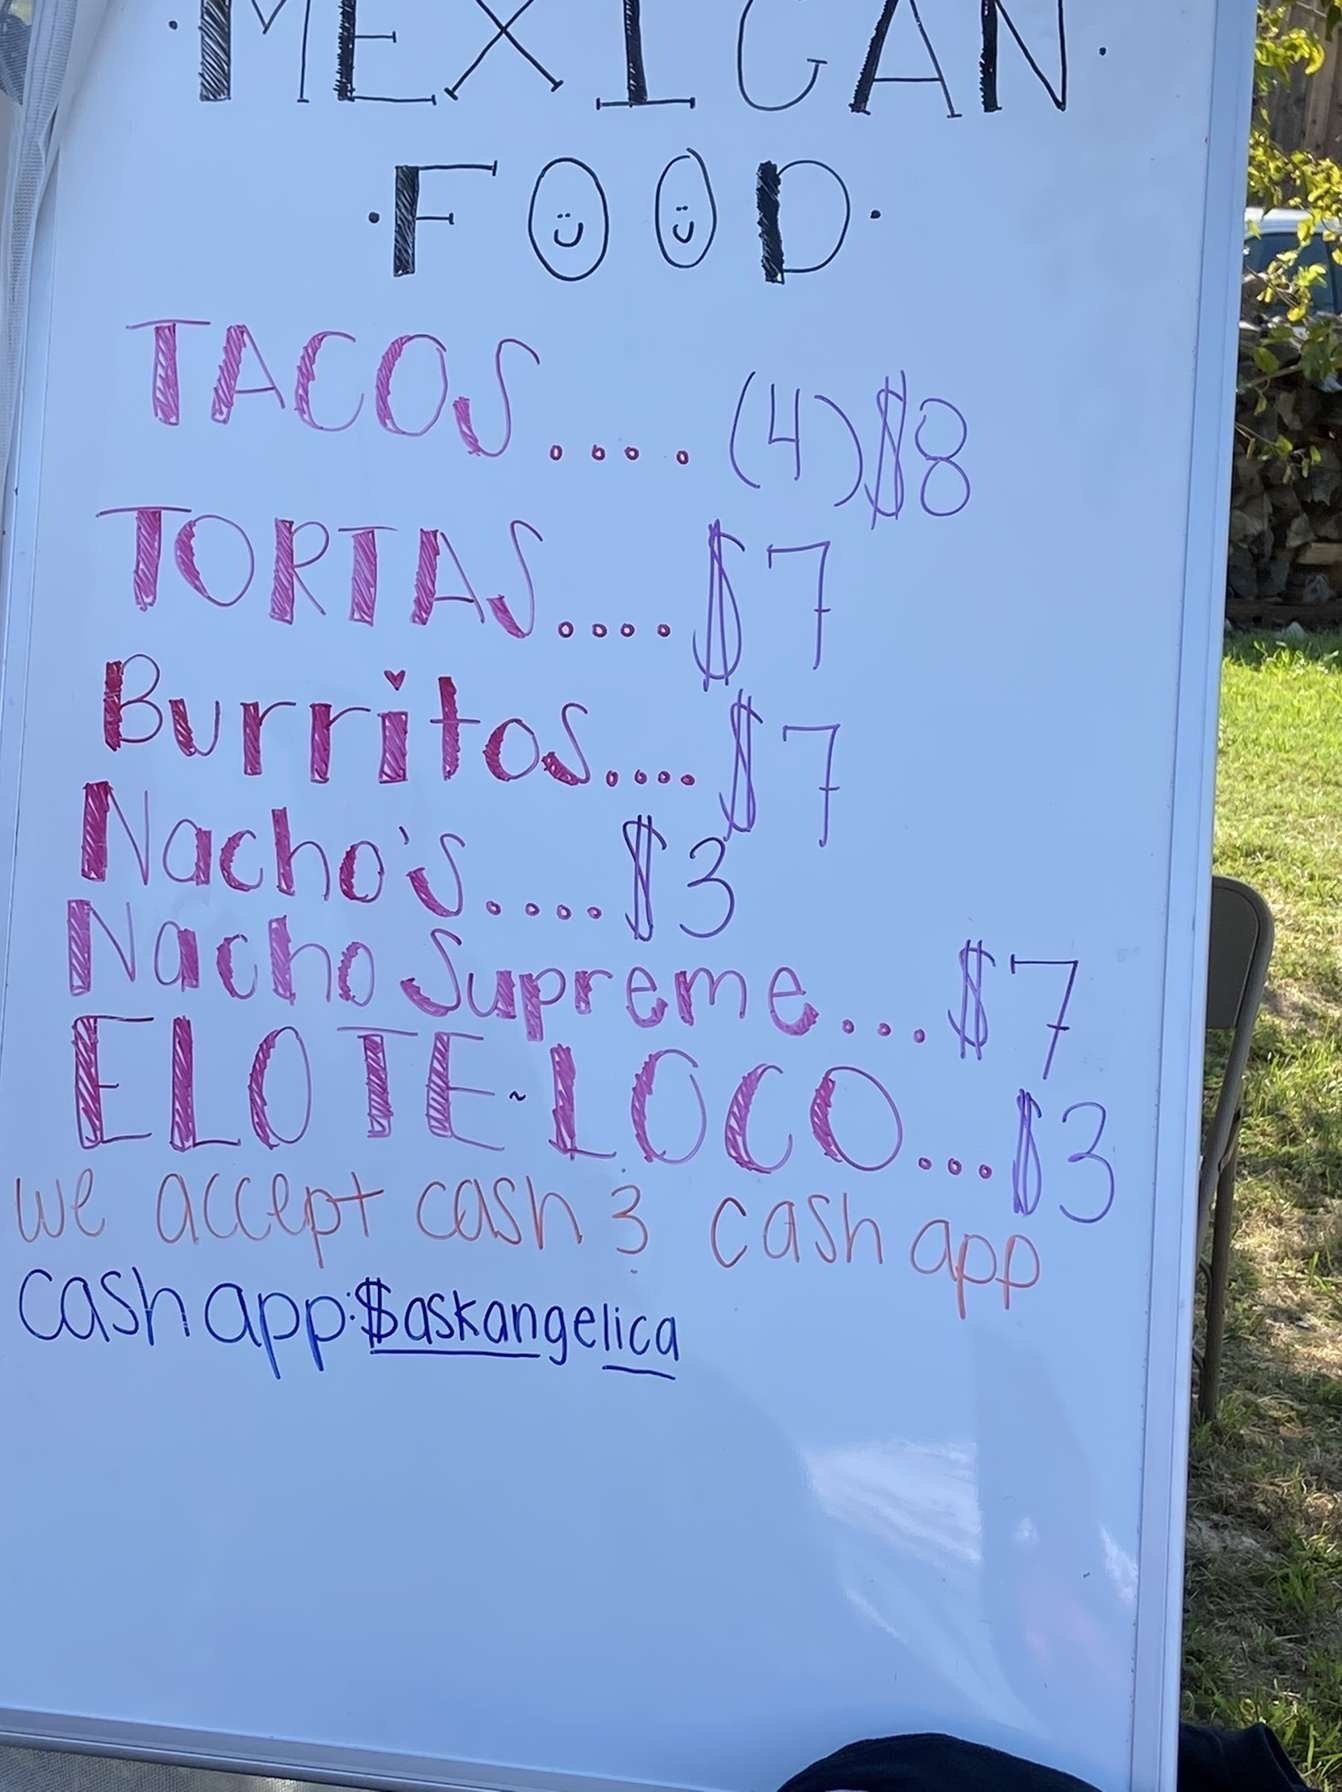 ·MEXICAN·
·FOOD·
TACOS.... (4) $8
TORTAS.... $7
Burritos.... $7
Nacho's.... $3
Nacho Supreme... $7
ELOTE~LOCO... $3
we accept cash 3 cash app
cash app:$askangelica